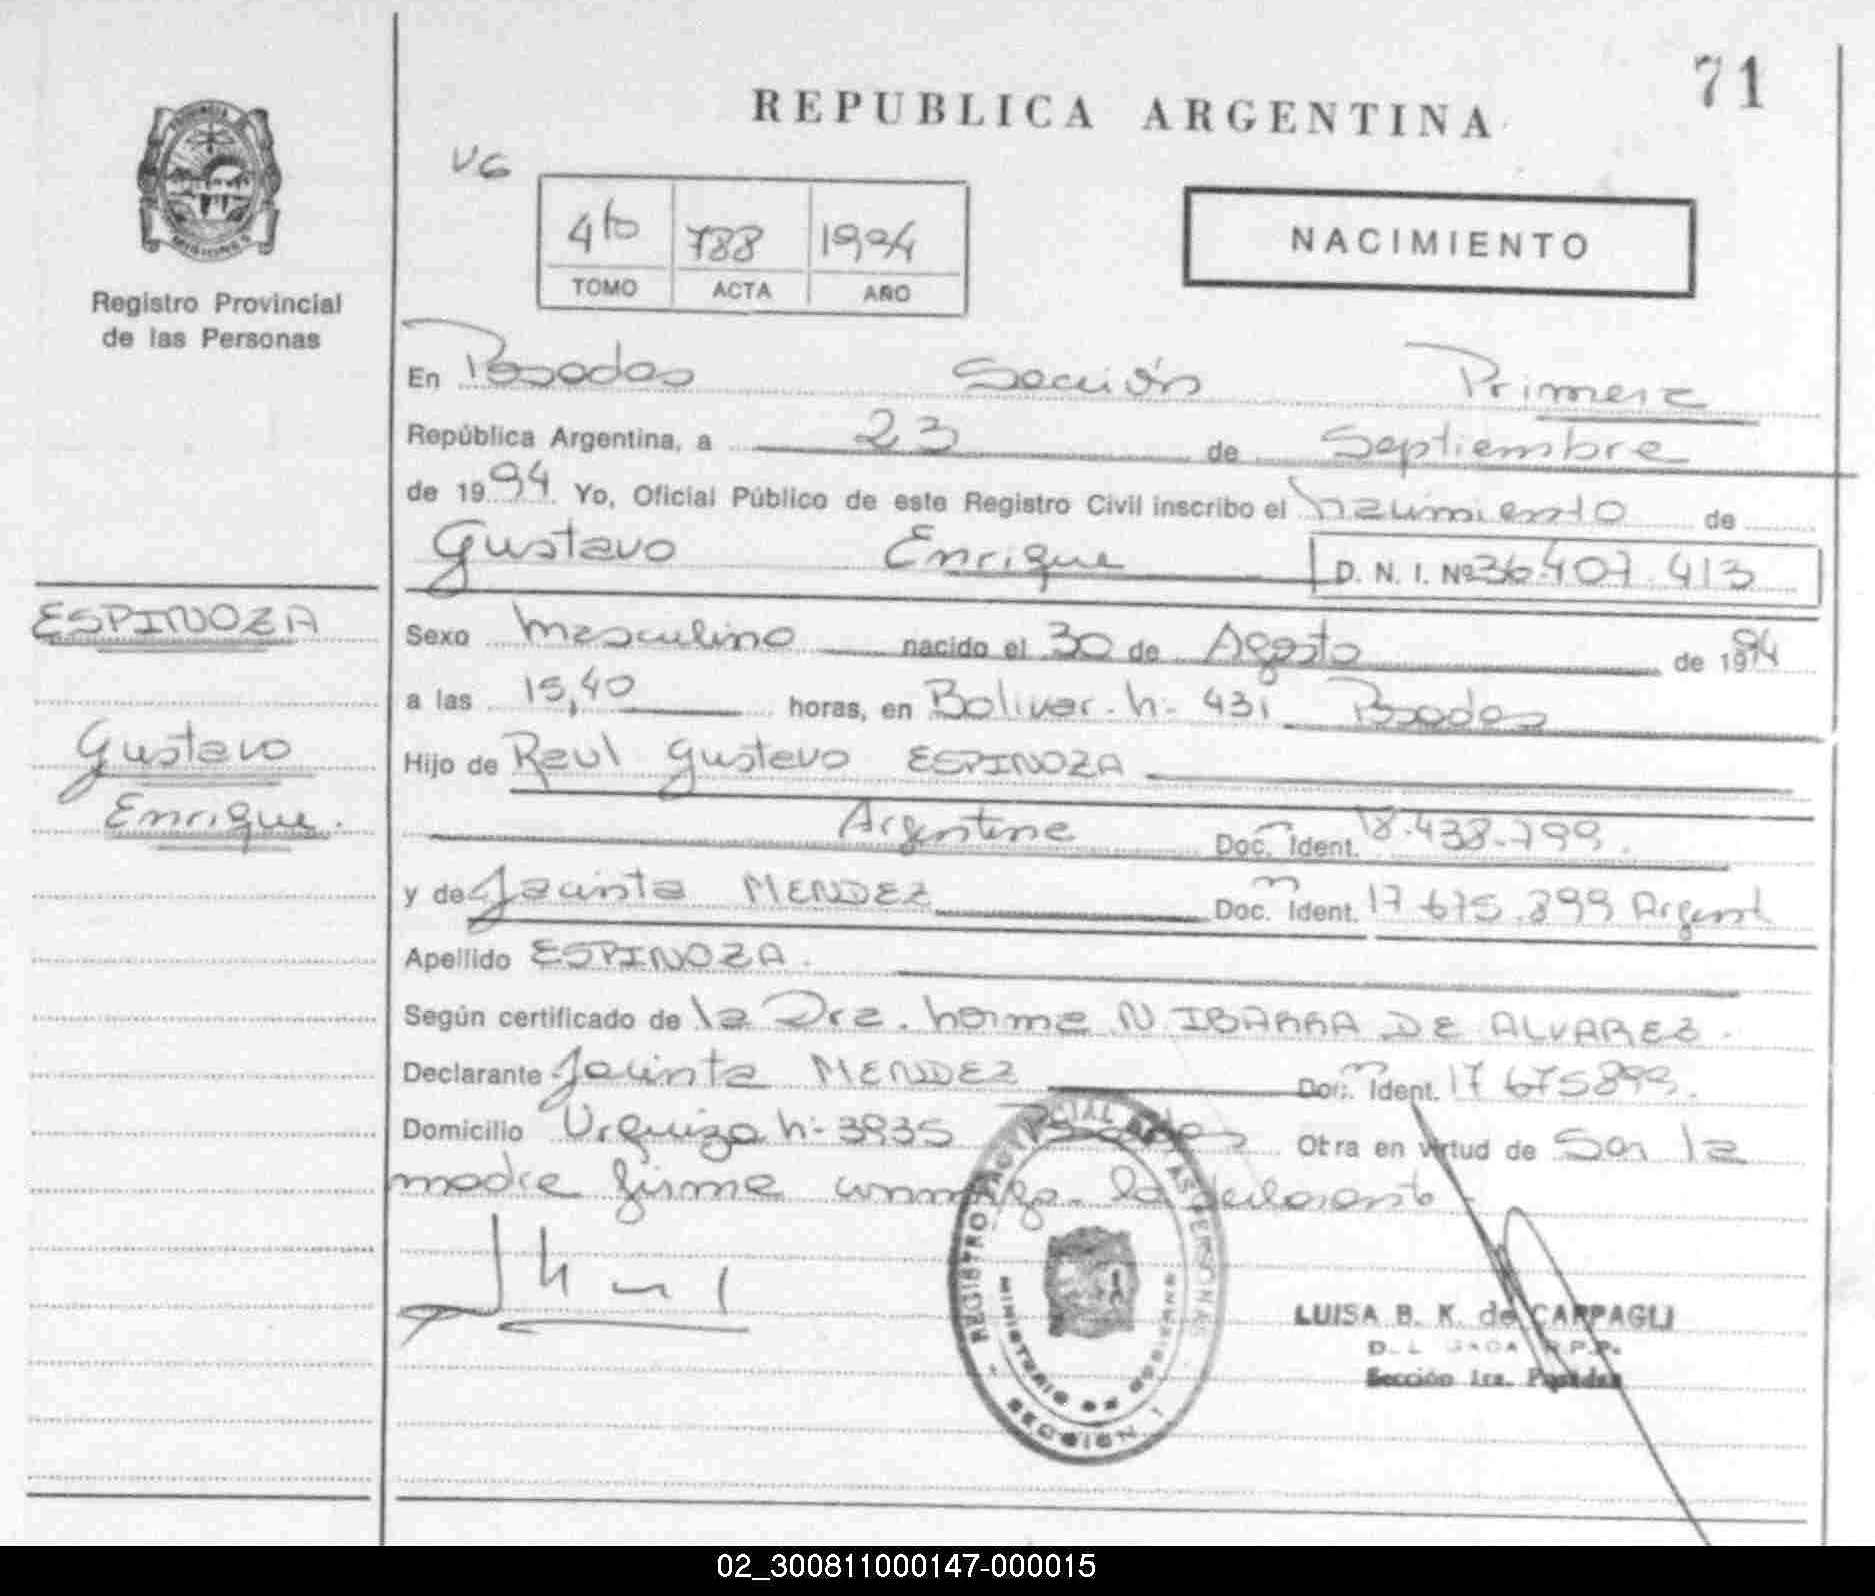 71
REPUBLICA ARGENTINA
VG
4to 788 1994
TOMO ACTA AÑO
NACIMIENTO
PROVINCIA DE MISIONES
Registro Provincial
de las Personas
En Posadas Sección Primera
República Argentina, a 23 de Septiembre
de 1994 Yo, Oficial Público de este Registro Civil inscribo el nacimiento de
Gustavo Enrique D. N. I. Nº 36.407.413
ESPINOZA
Gustavo
Enrique.
Sexo Masculino nacido el 30 de Agosto de 1994
a las 15,40 horas, en Bolivar n: 431 Posadas
Hijo de Raul Gustavo ESPINOZA
Argentina Doc. Ident. 18.438.799.
y de Jacinta MENDEZ Doc. Ident. 17 675.899 Argent
Apellido ESPINOZA.
Según certificado de la Dra. Norma N. IBARRA DE ALVAREZ.
Declarante Jacinta MENDEZ Doc. Ident. 17 675899.
Domicilio Urquiza n: 3935 Posadas Otra en virtud de Ser la
madre firma conmigo la declarante.
REGISTRO PROVINCIAL DE LAS PERSONAS
MINISTERIO DE GOBIERNO
SECCION 1
LUISA B. K. de CARPAGLI
DELEGADA R.P.P.
Sección 1ra. Posadas
02_300811000147-000015